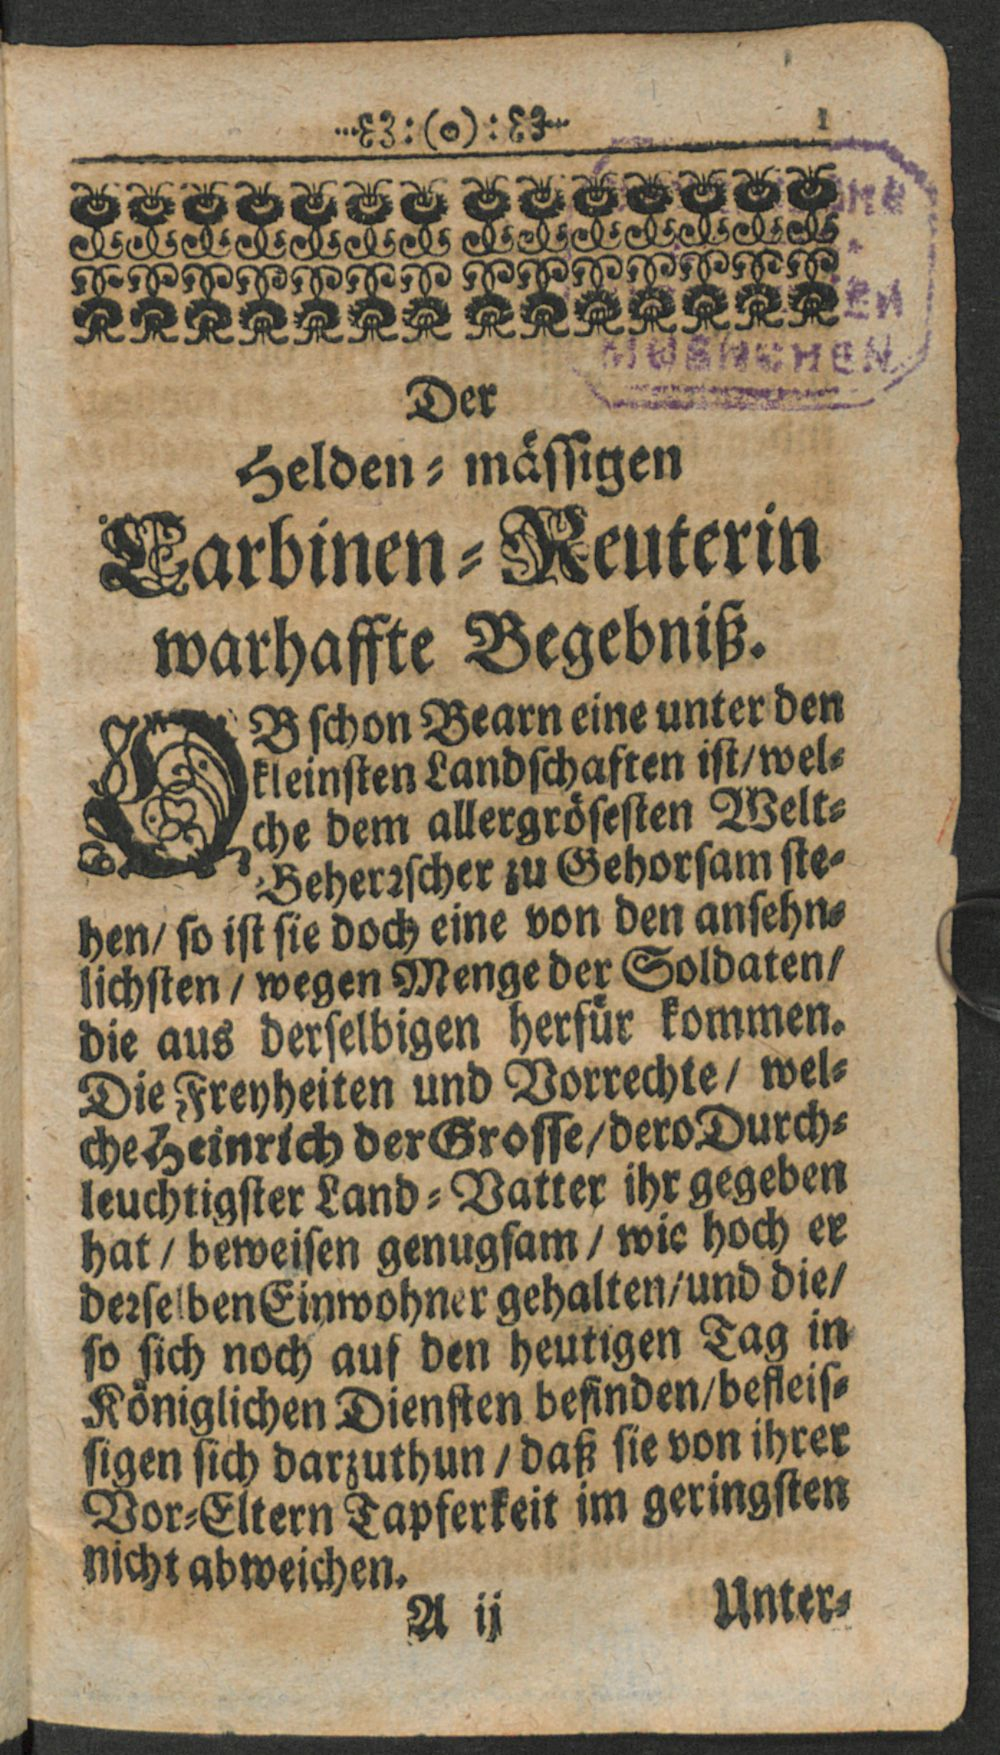 :(o): 1
Der
Helden-mässigen
Carbinen-Reuterin
warhaffte Begebniß.
OB schon Bearn eine unter den
kleinsten Landschaften ist/wel-
che dem allergrösesten Welt-
Beherꝛscher zu Gehorsam ste-
hen/ so ist sie doch eine von den ansehn-
lichsten / wegen Menge der Soldaten/
die aus derselbigen herfür kommen.
Die Freyheiten und Vorrechte / wel-
che Heinrich der Grosse/dero Durch-
leuchtigster Land-Vatter ihr gegeben
hat / beweisen genugsam / wie hoch er
deꝛselben Einwohner gehalten/und die/
so sich noch auf den heutigen Tag in
Königlichen Diensten befinden/befleis-
sigen sich darzuthun / daß sie von ihrer
Vor-Eltern Tapferkeit im geringsten
nicht abweichen.
A ij Unter-
MUENCHEN